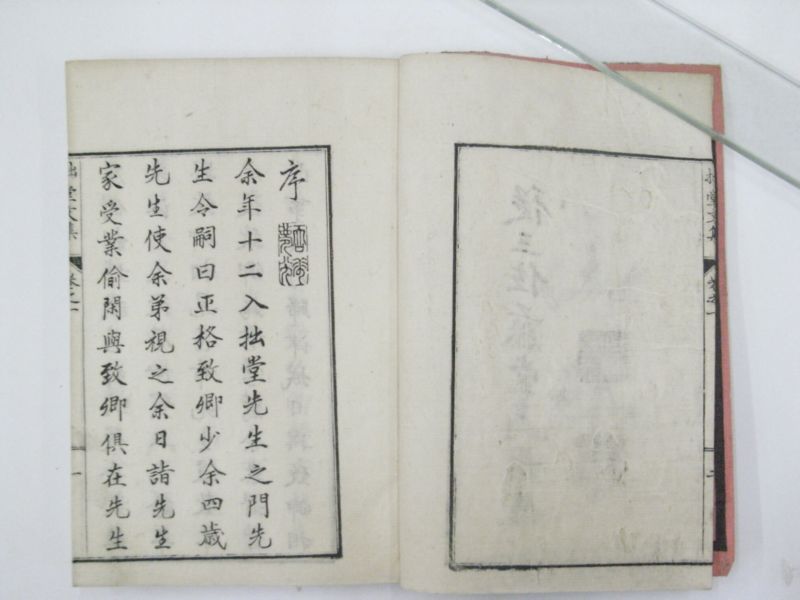 拙堂文集
卷之一
序
余年十二入拙堂先生之門先
生令嗣曰正格致卿少余四歳
先生使余弟視之余日詣先生
家受業偷閑與致卿俱在先生
拙堂文集
卷之一
一